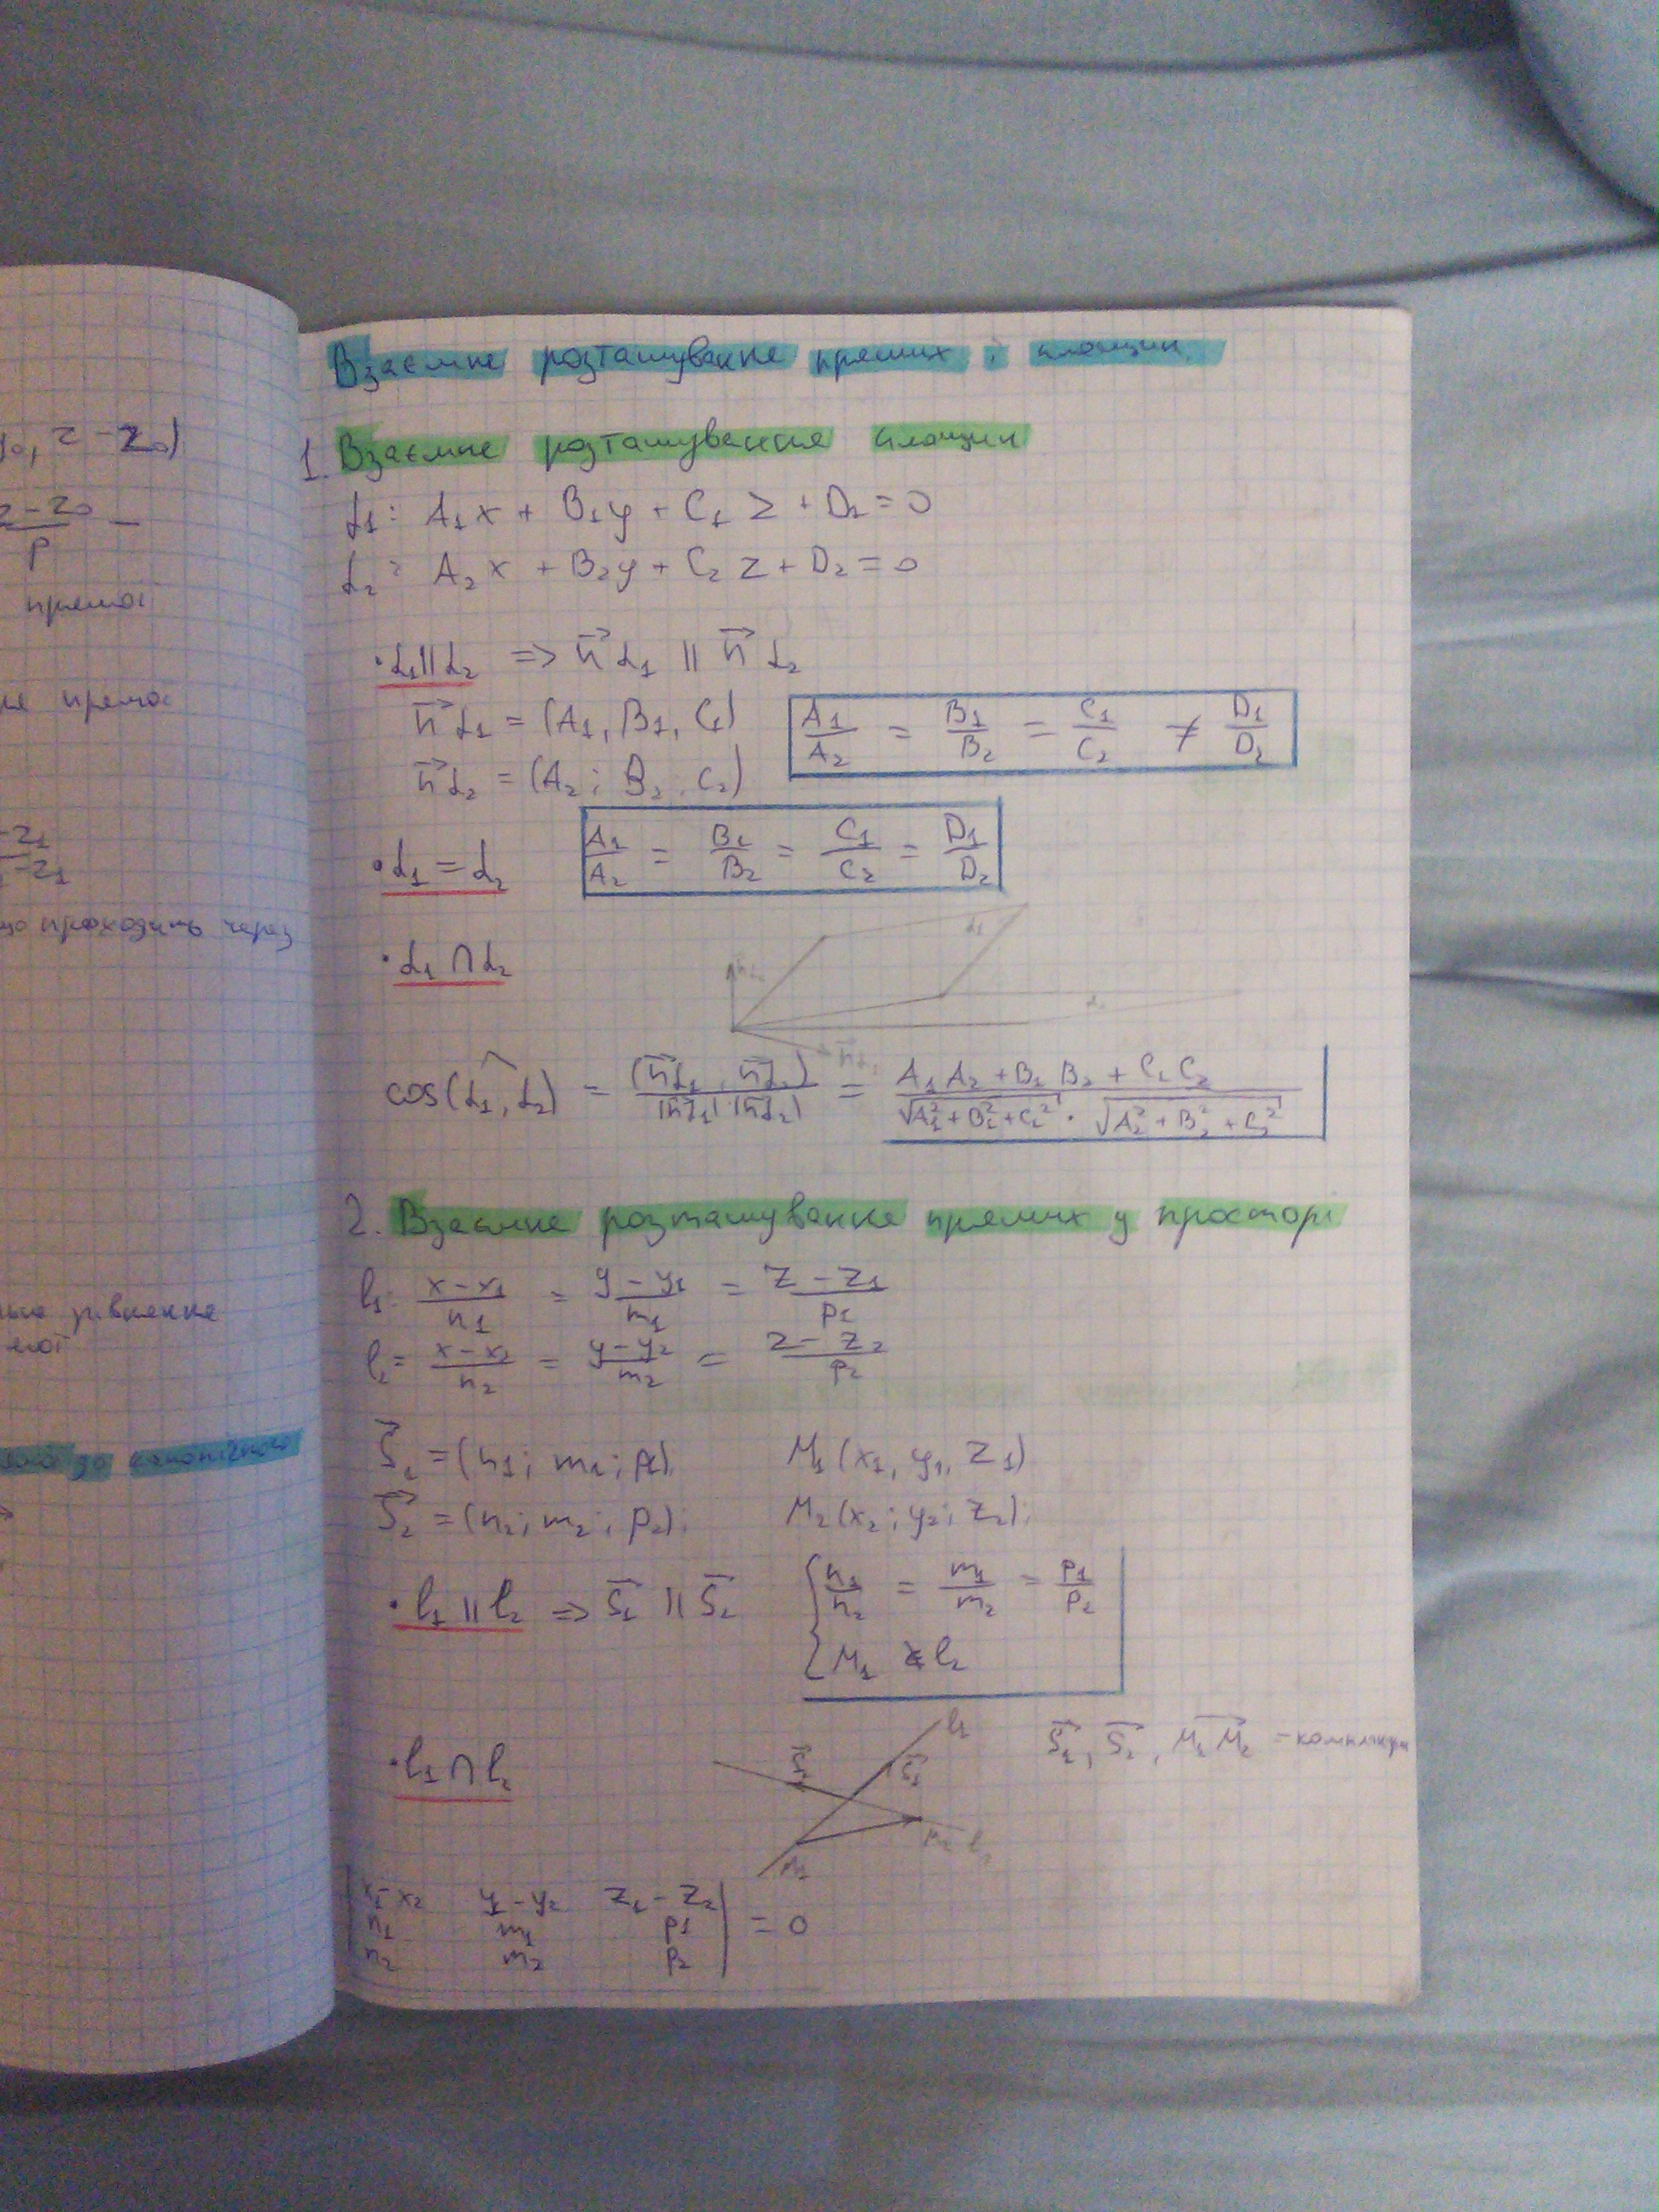 y₀, z - z₀)
z - z₀
p
прямої
прямої
- z₁
- z₁
що проходить через
рівняння
до канонічного
Взаємне розташування прямих і площин
1. Взаємне розташування площин
α₁: A₁x + B₁y + C₁z + D₁ = 0
α₂: A₂x + B₂y + C₂z + D₂ = 0
· α₁ || α₂ => n⃗α₁ || n⃗α₂
n⃗α₁ = (A₁, B₁, C₁) A₁/A₂ = B₁/B₂ = C₁/C₂ ≠ D₁/D₂
n⃗α₂ = (A₂; B₂, C₂)
· α₁ = α₂ A₁/A₂ = B₁/B₂ = C₁/C₂ = D₁/D₂
· α₁ ∩ α₂
cos(α₁,^α₂) = (n⃗α₁, n⃗α₂)/|n⃗α₁|·|n⃗α₂| = A₁A₂ + B₁B₂ + C₁C₂/√A₁² + B₁² + C₁² · √A₂² + B₂² + C₂²
2. Взаємне розташування прямих у просторі
l₁: x - x₁/n₁ = y - y₁/m₁ = z - z₁/p₁
l₂: x - x₂/n₂ = y - y₂/m₂ = z - z₂/p₂
S⃗₁ = (n₁; m₁; p₁). M₁(x₁, y₁, z₁)
S⃗₂ = (n₂; m₂; p₂); M₂(x₂; y₂; z₂);
· l₁ || l₂ => S⃗₁ || S⃗₂ { n₁/n₂ = m₁/m₂ = p₁/p₂
M₁ ∉ l₂
· l₁ ∩ l₂ S⃗₂ S⃗₁ l₁ S⃗₁, S⃗₂, M₁M₂ - компланарн
M₁ M₂ l₂
| x₁ - x₂ y₁ - y₂ z₁ - z₂ |
| n₁ m₁ p₁ | = 0
| n₂ m₂ p₂ |